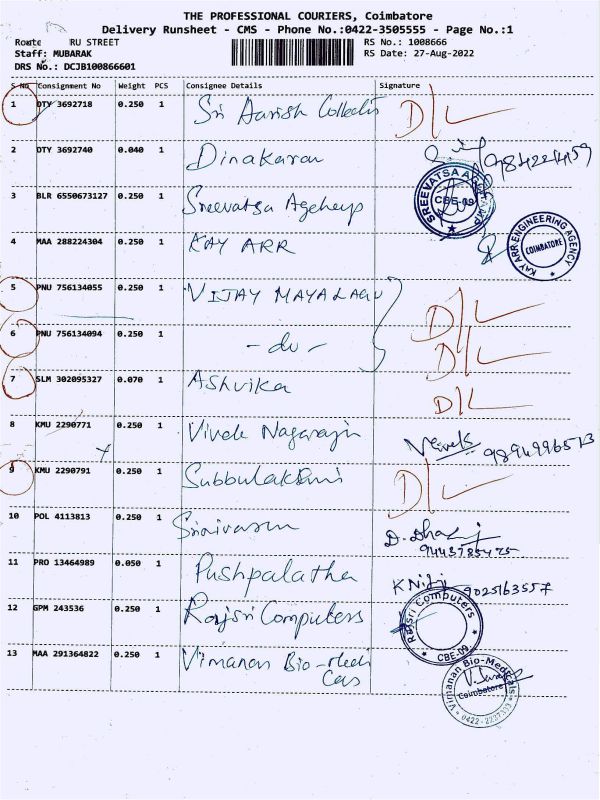 THE PROFESSIONAL COURIERS, Coimbatore
Delivery Runsheet - CMS - Phone No.:0422-3505555 - Page No.:1
Route RU STREET RS No.: 1008666
Staff: MUBARAK RS Date: 27-Aug-2022
DRS No.: DCJB100866601
S No Consignment No Weight PCS Consignee Details Signature
1 DTY 3692718 0.250 1 Sri Aarish D/L
2 DTY 3692740 0.040 1 Dinakaran
3 BLR 6550673127 0.250 1 Sreevatsa
SREEVATSA CBE-09
4 MAA 288224304 0.250 1 KAY ARR
KAY ARR ENGINEERING AGENCY COIMBATORE
5 PNU 756134055 0.250 1 VIJAY D/L
6 PNU 756134094 0.250 1 - do - D/L
7 SLM 302095327 0.070 1 Ashvika D/L
8 KMU 2290771 0.250 1 Vivek Nagarajn Vivek 9894996513
9 KMU 2290791 0.250 1 D/L
10 POL 4113813 0.250 1 D.
11 PRO 13464989 0.050 1 Pushpalatha 9025163557
12 GPM 243536 0.250 1 Rajsri Computers
Rajsri Computers CBE-09
13 MAA 291364822 0.250 1 Vimanan Bio-Medi
Cas
Vimanan Bio-Medicals Coimbatore